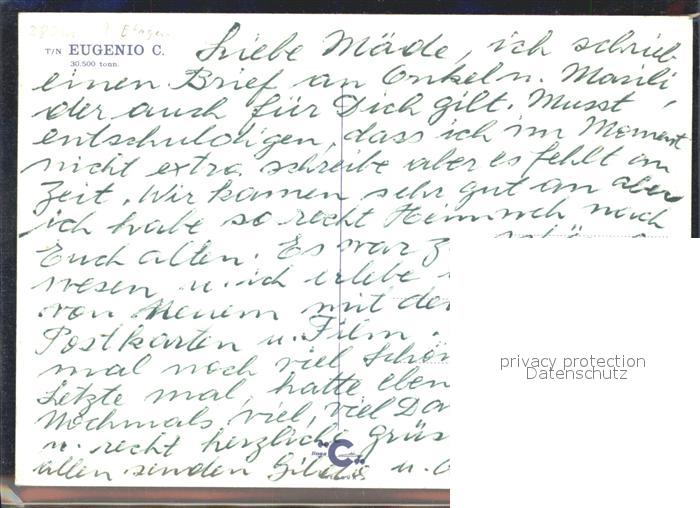 T/N EUGENIO C.
30.500 tonn.
Liebe Mäde, ich schrieb
einen Brief an Onkel u. Marili,
der auch für Dich gilt. Musst
entschuldigen, dass ich im Moment
nicht extra schreibe aber es fehlt an
Zeit. Wir kamen sehr gut an aber
ich habe so recht Heimweh nach
Euch allen. Es war z
wesen u. ich erlebe
von Neuem mit de
Postkarten u. Film.
mal noch viel Schön
Letzte mal, hatte eben
Nochmals viel, viel Da
u. recht herzliche Grüs
allen senden Gilda u.
linea C
privacy protection
Datenschutz